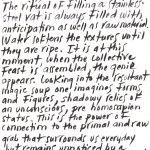 The ritual of filling a stainless-
steel vat is always filled with
anticipation as well as raw material.
Water softens the textures until
they are ripe. It is at this
moment, when the collective
Feast is assembled, the genie
appears. Looking into the resultant
magic soup one imagines forms
and figures, shadowy relics of
an unconscious, pre homosapien
status. This is the power of a
connection to the primal and raw
grid that surrounds us everyday
but remains unnoticed by a